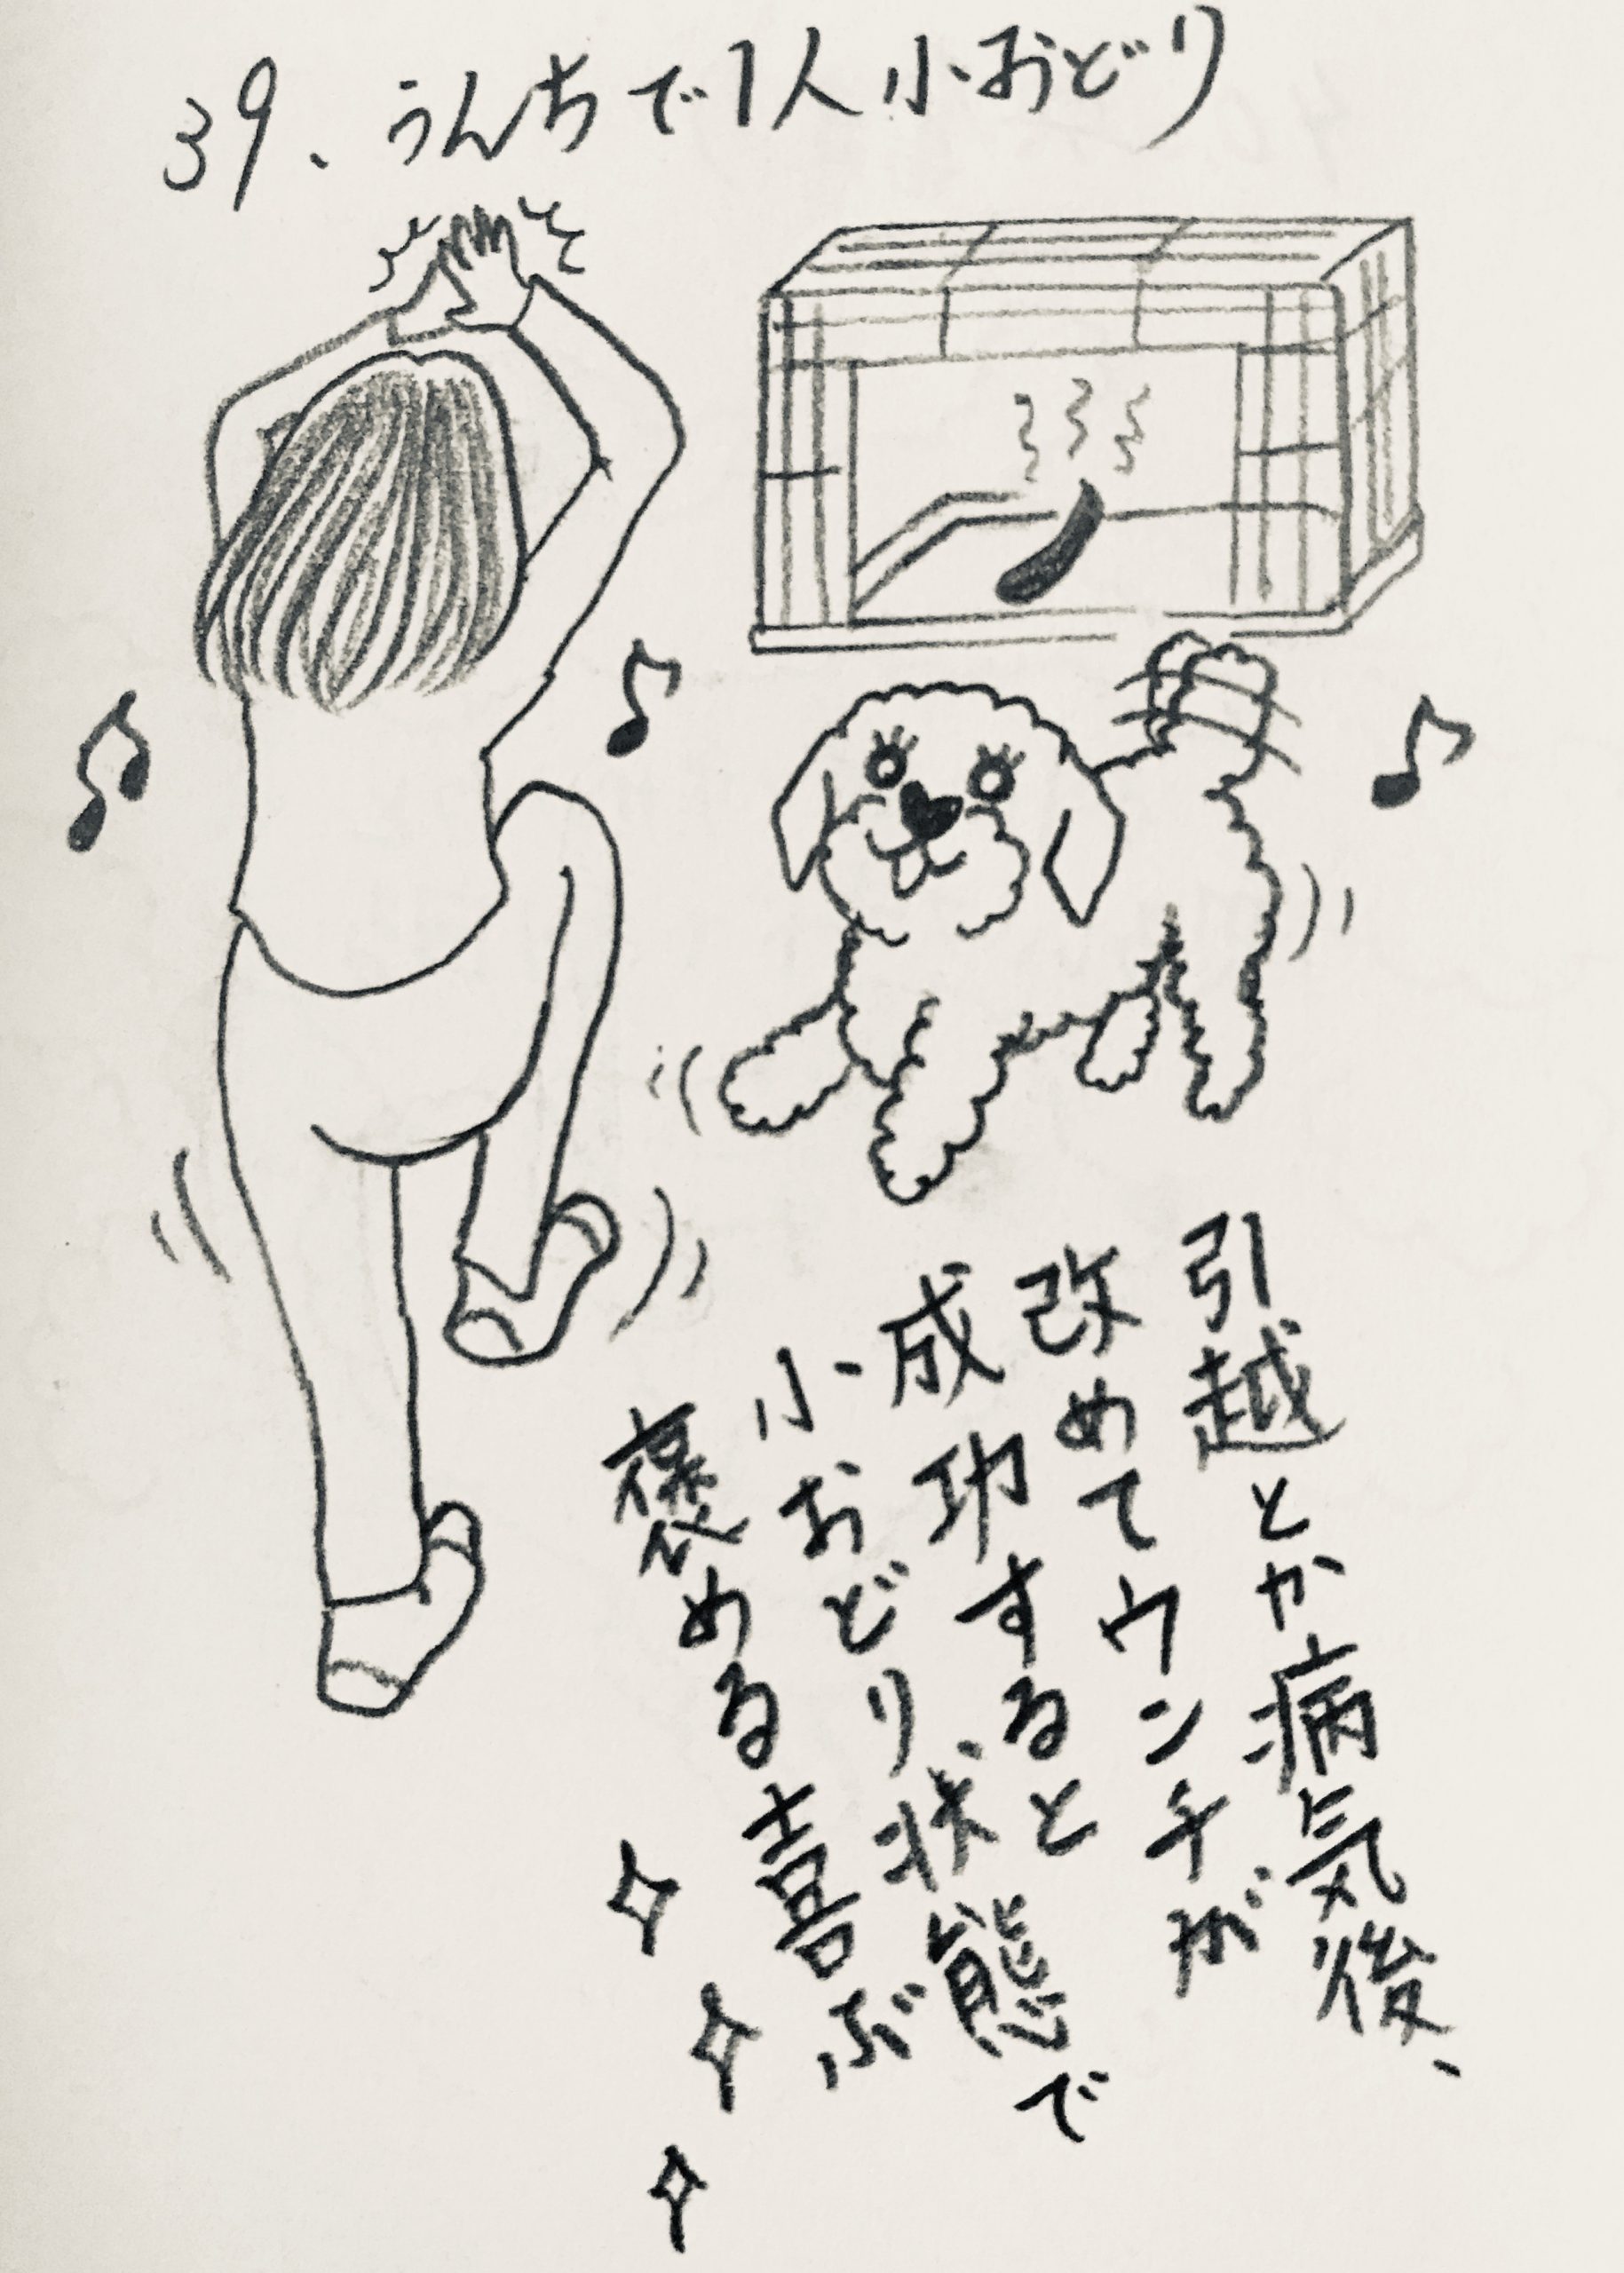 39、うんちで1人小おどり
引越とか病気後、
改めてウンチが
成功すると
小おどり状態で
褒める喜ぶ